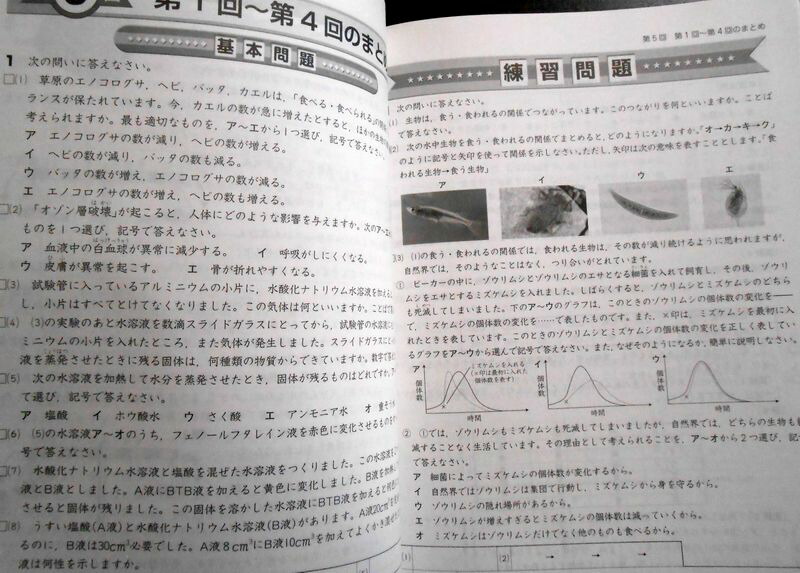 第1回〜第4回のまとめ
基本問題
1 次の問いに答えなさい。
□(1) 草原のエノコログサ，ヘビ，バッタ，カエルは，「食べる・食べられる」の関係
ランスが保たれています。今，カエルの数が急に増えたとすると，ほかの生物
考えられますか。最も適切なものを，ア〜エから1つ選び，記号で答えなさい。
ア エノコログサの数が減り，ヘビの数が増える。
イ ヘビの数が減り，バッタの数も減る。
ウ バッタの数が増え，エノコログサの数が減る。
エ エノコログサの数が増え，ヘビの数も増える。
□(2) 「オゾン層破壊」が起こると，人体にどのような影響を与えますか。次のア〜エ
ものを1つ選び，記号で答えなさい。
ア 血液中の白血球が異常に減少する。 イ 呼吸がしにくくなる。
ウ 皮膚が異常を起こす。 エ 骨が折れやすくなる。
□(3) 試験管に入っているアルミニウムの小片に，水酸化ナトリウム水溶液を加える
し，小片はすべてとけてなくなりました。この気体は何といいますか。ことばで
□(4) (3)の実験のあと水溶液を数滴スライドガラスにとってから，試験管の水溶液に
ミニウムの小片を入れたところ，また気体が発生しました。スライドガラスに
液を蒸発させたときに残る固体は，何種類の物質からできていますか。数字で
□(5) 次の水溶液を加熱して水分を蒸発させたとき，固体が残るものはどれですか。
て選び，記号で答えなさい。
ア 塩酸 イ ホウ酸水 ウ さく酸 エ アンモニア水 オ 重そう
□(6) (5)の水溶液ア〜オのうち，フェノールフタレイン液を赤色に変化させるものを
号で答えなさい。
□(7) 水酸化ナトリウム水溶液と塩酸を混ぜた水溶液をつくりました。この水溶液を
液とB液としました。A液にBTB液を加えると黄色に変化しました。B液を加熱
ると固体が残りました。この固体を溶かした水溶液にBTB液を加えると何色
□(8) うすい塩酸(A液)と水酸化ナトリウム水溶液(B液)があります。A液20cm³
るのに，B液は30cm³必要でした。A液8cm³にB液10cm³を加えてよくかき混ぜ
液は何性を示しますか。
第5回 第1回〜第4回のまとめ
練習問題
次の問いに答えなさい。
(1) 生物は，食う・食われるの関係でつながっています。このつながりを何といいますか。ことば
で答えなさい。
(2) 次の水中生物を食う・食われるの関係でまとめると，どのようになりますか。「オ→カ→キ→ク」
のように記号と矢印を使って関係を示しなさい。ただし，矢印は次の意味を表すこととします。「食
われる生物→食う生物」
ア イ ウ エ
(3) (1)の食う・食われるの関係では，食われる生物は，その数が減り続けるように思われますが，
自然界では，そのようなことはなく，つり合いがとれています。
① ビーカーの中に，ゾウリムシとゾウリムシのエサとなる細菌を入れて飼育し，その後，ゾウリ
ムシをエサとするミズケムシを入れました。しばらくすると，ゾウリムシとミズケムシのどちら
も死滅してしまいました。下のア〜ウのグラフは，このときのゾウリムシの個体数の変化を――
で，ミズケムシの個体数の変化を……で表したものです。また，×印は，ミズケムシを最初に入
れたときを表しています。このときのゾウリムシとミズケムシの個体数の変化を正しく表してい
るグラフをア〜ウから選んで記号で答えなさい。また，なぜそのようになるか，簡単に説明しなさい。
ア イ ウ
ミズケムシを入れる
(×印は最初に入れた
個体数を表す)
個体数 個体数 個体数
時間 時間 時間
② ①では，ゾウリムシもミズケムシも死滅してしまいましたが，自然界では，どちらの生物も
減することなく生活しています。その理由として考えられることを，ア〜オから2つ選び，記
で答えなさい。
ア 細菌によってミズケムシの個体数が変化するから。
イ 自然界ではゾウリムシは集団で行動し，ミズケムシから身を守るから。
ウ ゾウリムシの隠れ場所があるから。
エ ゾウリムシが増えすぎるとミズケムシの個体数は減っていくから。
オ ミズケムシはゾウリムシだけでなく他のものも食べるから。
(1) (2) → → →